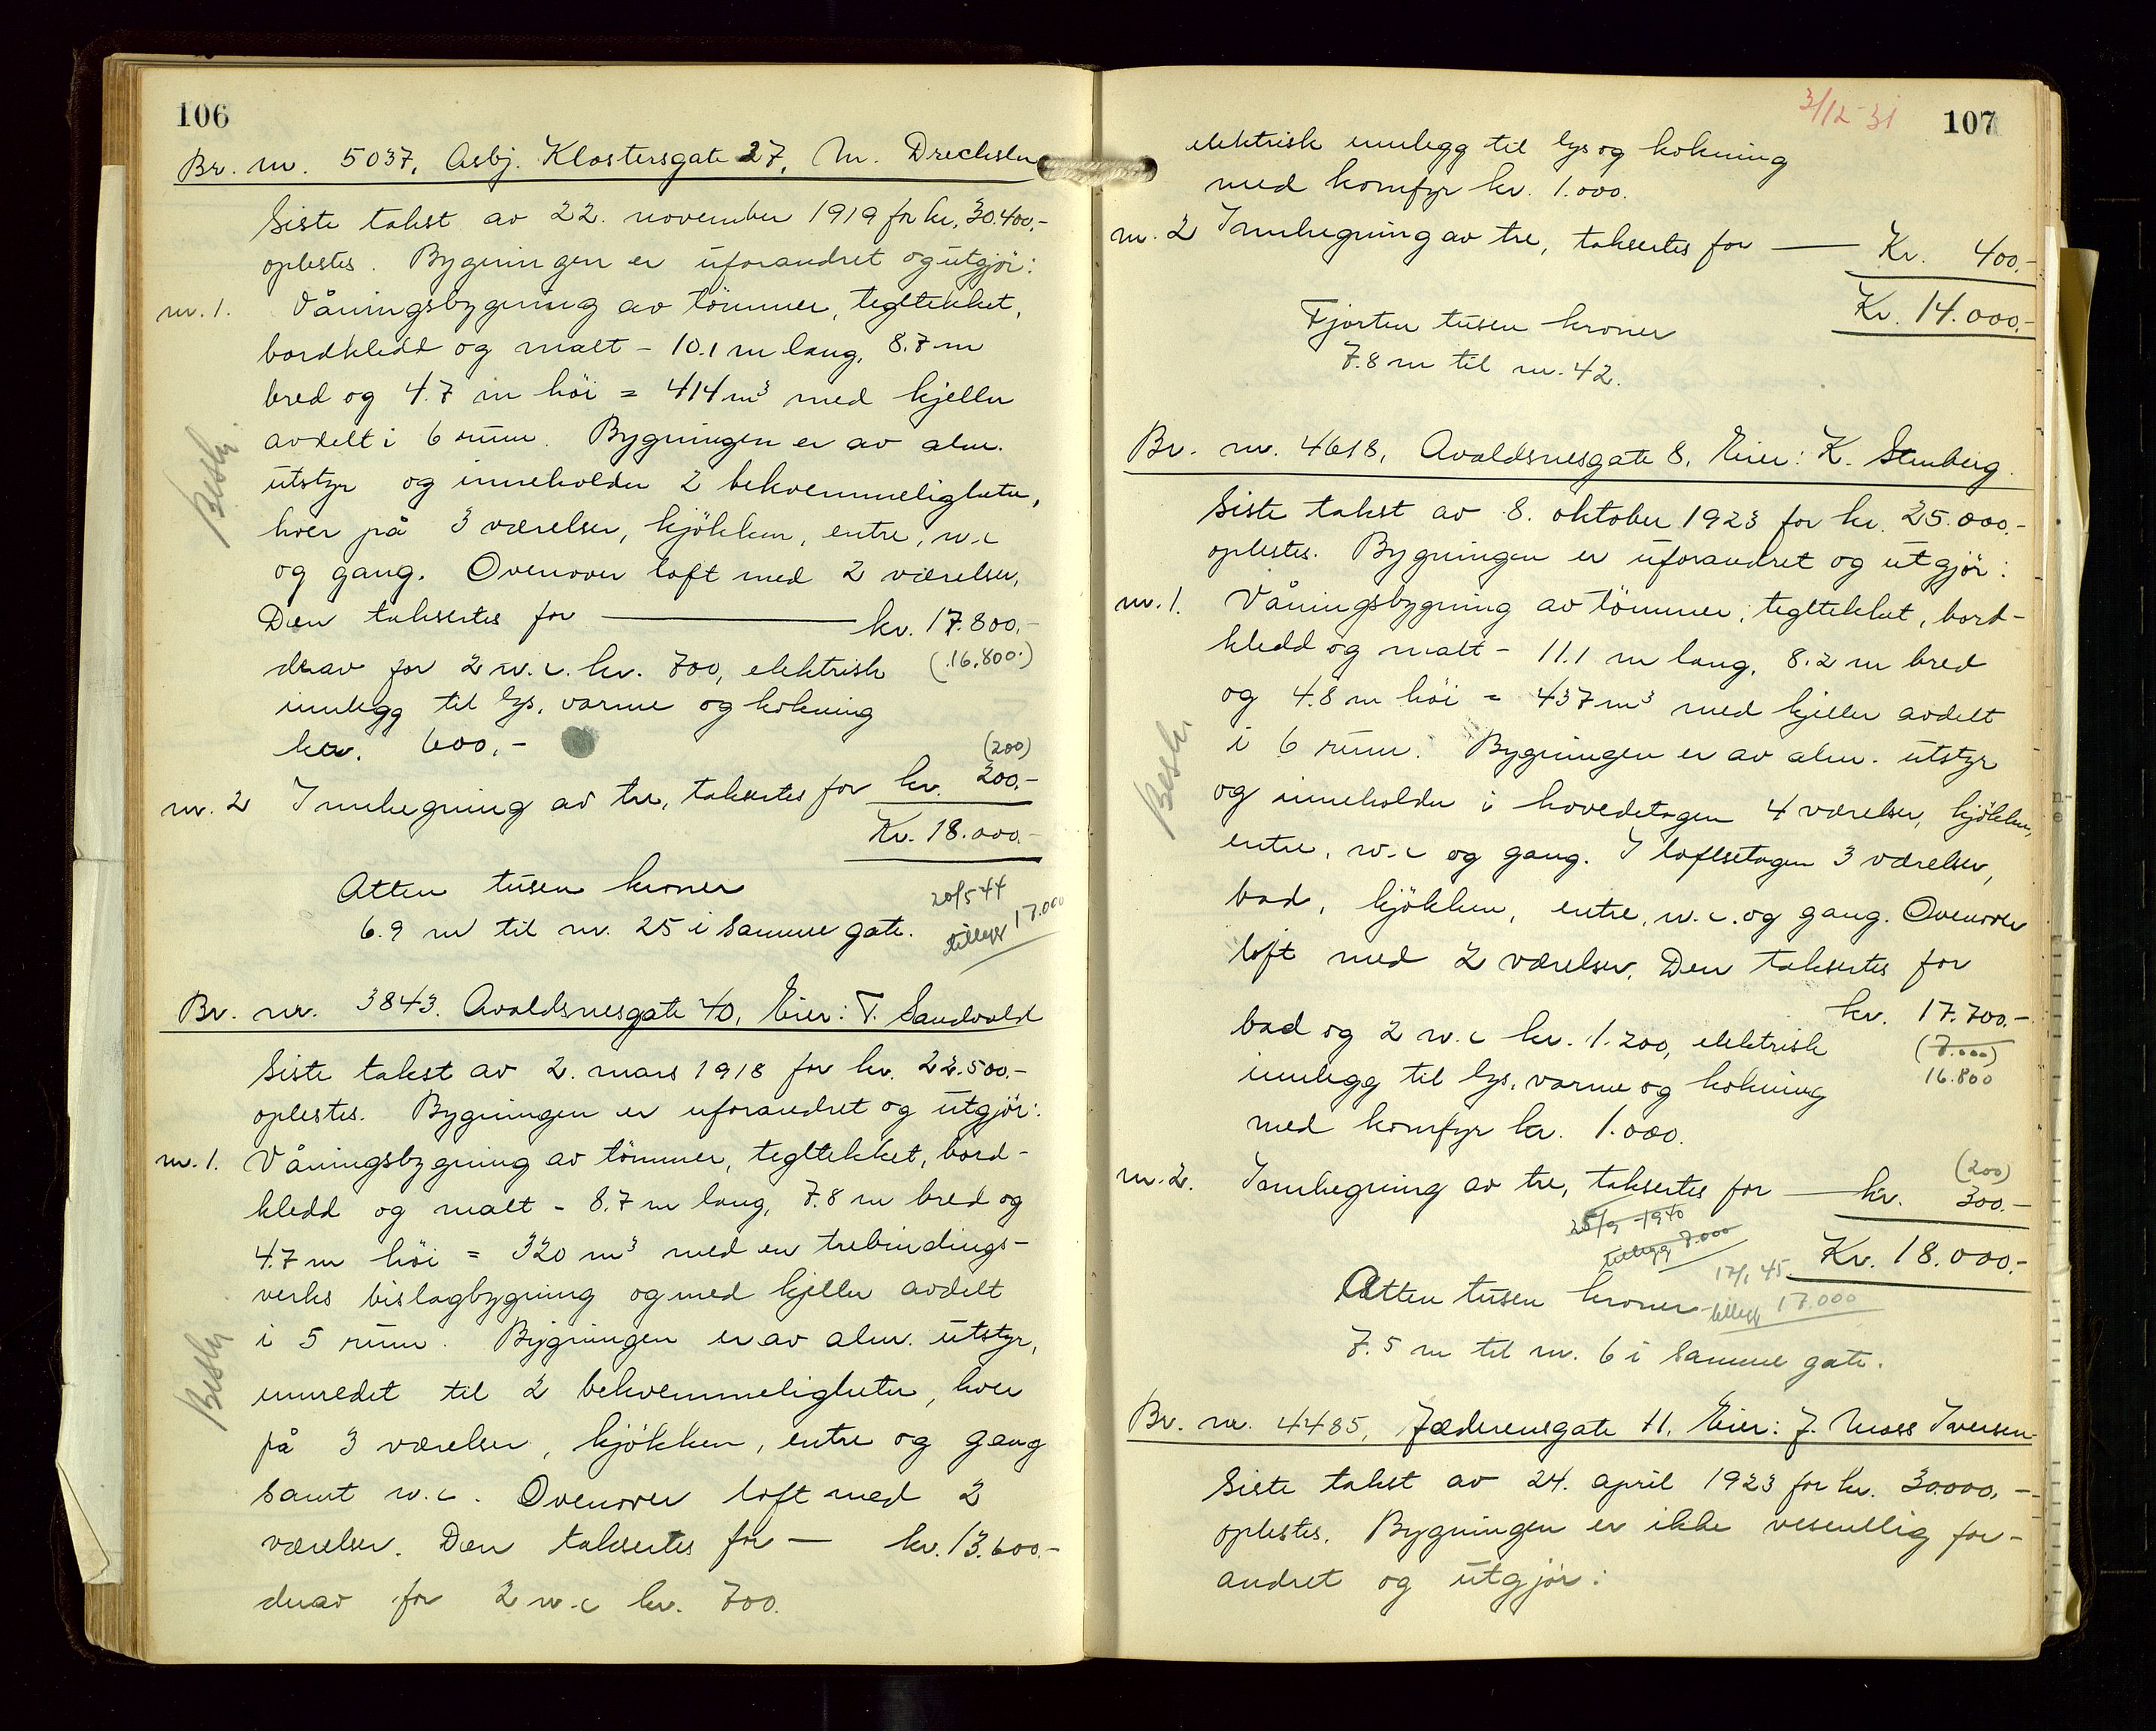 106
Br. nr. 5037, Asbj. Klostersgate 27, M. Drechsler
Siste takst av 22. november 1919 for kr. 30.400,-
oplestes. Bygningen er uforandret og utgjör:
nr. 1. Våningsbygning av tömmer, tegltekket,
bordkledd og malt - 10.1 m lang, 8.7 m
bred og 4.7 m höi = 414 m³ med kjeller
avdelt i 6 rum. Bygningen er av alm.
utstyr og inneholder 2 bekvemmeligheter,
hver på 3 værelser, kjökken, entre, w.c
og gang. Ovenover loft med 2 værelser,
Den taksertes for — kr. 17.800,-
derav for 2 w.c. kr. 700, elektrisk (16.800.)
innlegg til lys, varme og kokning
kr. 600,-
(200)
nr. 2 Innhegning av tre, taksertes for kr. 200,-
Kr. 18.000,-
Atten tusen kroner
6.9 m til nr. 25 i samme gate.
20/5 44
tillegg 17.000
Beskr.
Br. nr. 3843. Avaldsnesgate 40, Eier: T. Sandvold
Siste takst av 2. mars 1918 for kr. 22.500.-
oplestes. Bygningen er uforandret og utgjör:
nr. 1. Våningsbygning av tömmer, tegltekket, bord-
kledd og malt - 8.7 m lang, 7.8 m bred og
4.7 m höi = 320 m³ med en trebindings-
verks bislagbygning og med kjeller avdelt
i 5 rum. Bygningen er av alm. utstyr,
innredet til 2 bekvemmeligheter, hver
på 3 værelser, kjökken, entre og gang
samt w.c. Ovenover loft med 2
værelser. Den taksertes for — kr. 13.600.-
derav for 2 w.c kr. 700.
Beskr
3/12-31
107
elektrisk innlegg til lys og kokning
med komfyr kr. 1.000.
nr. 2 Innhegning av tre, taksertes for — Kr. 400.-
Kr. 14.000.-
Fjorten tusen kroner
7.8 m til nr. 42.
Br. nr. 4618, Avaldsnesgate 8, Eier: K. Stenberg.
Siste takst av 8. oktober 1923 for kr. 25.000.-
oplestes. Bygningen er uforandret og utgjör:
nr. 1. Våningsbygning av tömmer, tegltekket, bord-
kledd og malt - 11.1 m lang, 8.2 m bred
og 4.8 m höi = 437 m³ med kjeller avdelt
i 6 rum. Bygningen er av alm. utstyr
og inneholder i hovedetagen 4 værelser, kjökken,
entre, w.c og gang. I loftsetagen 3 værelser,
bad, kjökken, entre, w.c. og gang. Ovenover
loft med 2 værelser. Den taksertes for
kr. 17.700.-
bad og 2 w.c kr. 1.200, elektrisk (7.000)
innlegg til lys, varme og kokning 16.800
med komfyr kr. 1.000.
(200)
nr. 2. Innhegning av tre, taksertes for — kr. 300.-
25/9-1940
tillegg 7.000
Kr. 18.000.-
17/1 45
Atten tusen kroner tillegg 17.000
7.5 m til nr. 6 i samme gate.
Beskr.
Br. nr. 4485, Jæderensgate 11, Eier: J. Moss Iversen
Siste takst av 24. april 1923 for kr. 30.000,-
oplestes. Bygningen er ikke vesentlig for-
andret og utgjör: